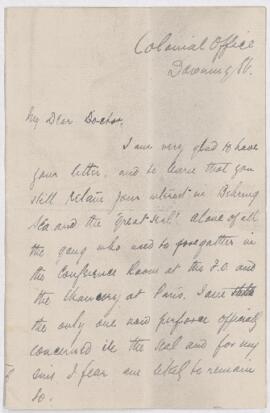 Colonial Office
Downing St.
My Dear Doctor,
I am very glad to have
your letter, and to learn that you
still retain your interest in Behring
Sea and the "great Seal". Alone of all
the gang who used to foregather in
the Conference Room at the F.O. and
the Chancery at Paris. I am
the only one now perforce officially
concerned in the Seal and for my
sins I fear am likely to remain
so.